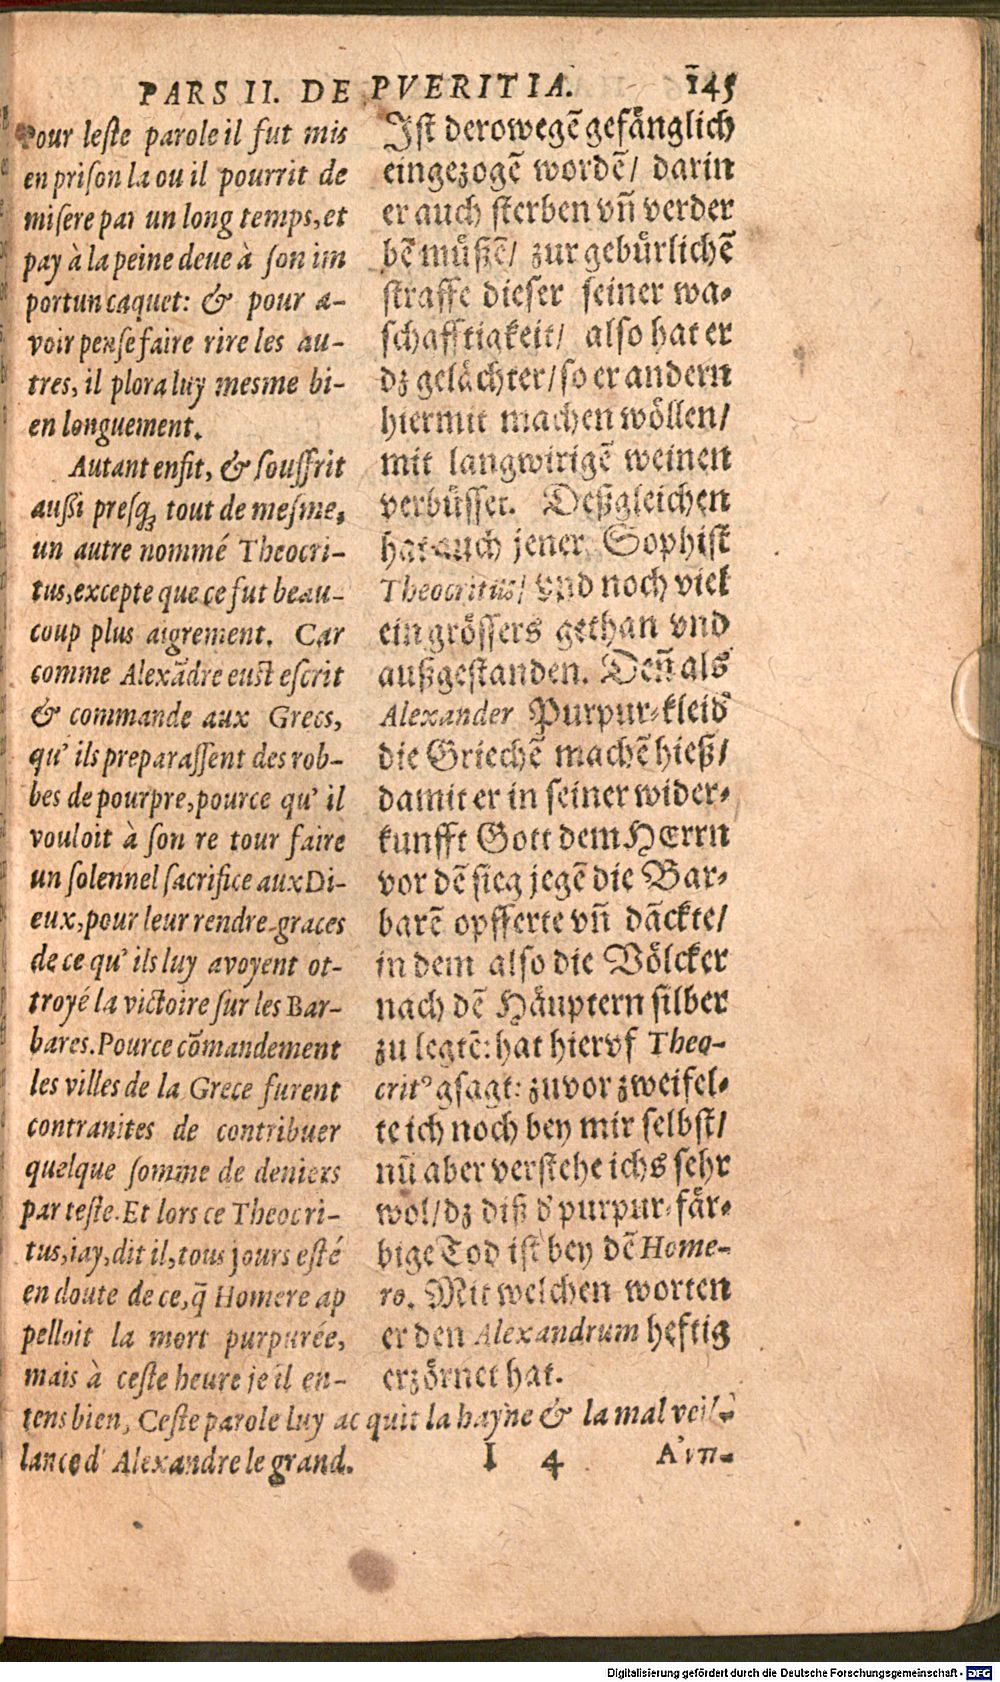 PARS II. DE PVERITIA. 145
Pour leſte parole il fut mis
en priſon la ou il pourrit de
miſere par un long temps, et
pay à la peine deue à ſon im
portun caquet: & pour a-
voir penſe faire rire les au-
tres, il plora luy mesme bi-
en longuement.
Autant enfit, & ſouffrit
auſſi preſq; tout de meſme,
un autre nommé Theocri-
tus, excepte que ce fut beau-
coup plus aigrement. Car
comme Alexãdre eust eſcrit
& commande aux Grecs,
qu' ils preparaſſent des rob-
bes de pourpre, pource qu' il
vouloit à ſon re tour faire
un ſolennel ſacrifice aux Di-
eux, pour leur rendre-graces
de ce qu' ils luy avoyent ot-
troyé la victoire ſur les Bar-
bares. Pource cõmandement
les villes de la Grece furent
contranites de contribuer
quelque ſomme de deniers
par teſte. Et lors ce Theocri-
tus, iay, dit il, tous jours eſté
en doute de ce, q̃ Homere ap
pelloit la mort purpurée,
mais à ceſte heure je il en-
tens bien, Ceſte parole luy ac quit la hayne & la mal veil-
lance d' Alexandre le grand.
Iſt derowegẽ gefänglich
eingezogẽ wordẽ/ darin
er auch ſterben vñ verder
bẽ müßẽ/ zur gebürlichẽ
ſtraffe dieſer ſeiner wa-
ſchafftigkeit/ alſo hat er
dz gelächter/ ſo er andern
hiermit machen wöllen/
mit langwirigẽ weinen
verbüſſet. Deßgleichen
hat auch jener Sophiſt
Theocritus/ vnd noch viel
ein gröſſers gethan vnd
außgeſtanden. Deñ als
Alexander Purpur-kleid
die Griechẽ machẽ hieß/
damit er in ſeiner wider-
kunfft Gott dem HErrn
vor dẽ ſieg jegẽ die Bar-
barẽ opfferte vñ dãckte/
in dem alſo die Völcker
nach dẽ Häuptern ſilber
zu legtẽ: hat hiervf Theo-
critꝰ gſagt: zuvor zweifel-
te ich noch bey mir ſelbſt/
nũ aber verſtehe ichs ſehr
wol/ dz diß d' purpur-fär-
bige Tod iſt bey dẽ Home-
ro. Mit welchen worten
er den Alexandrum heftig
erzörnet hat.
I 4
Digitalisierung gefördert durch die Deutsche Forschungsgemeinschaft - DFG